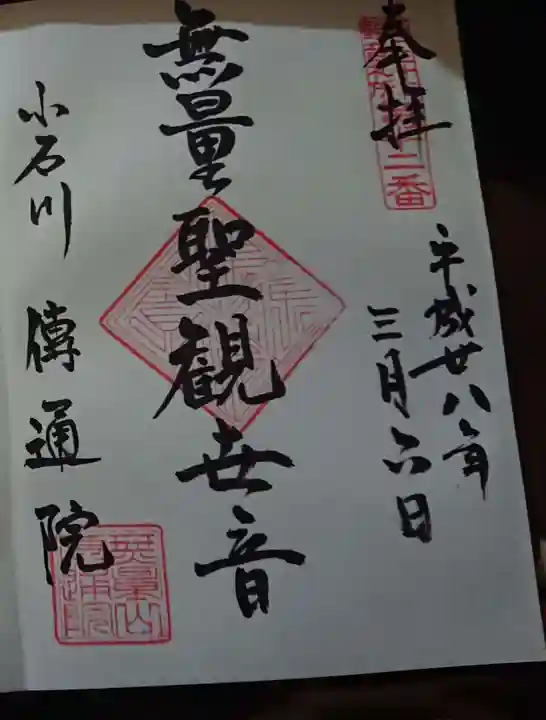 奉拝
二番
平成廿八年
三月六日
無量聖観世音
小石川 傳通院
無量山
傳通院